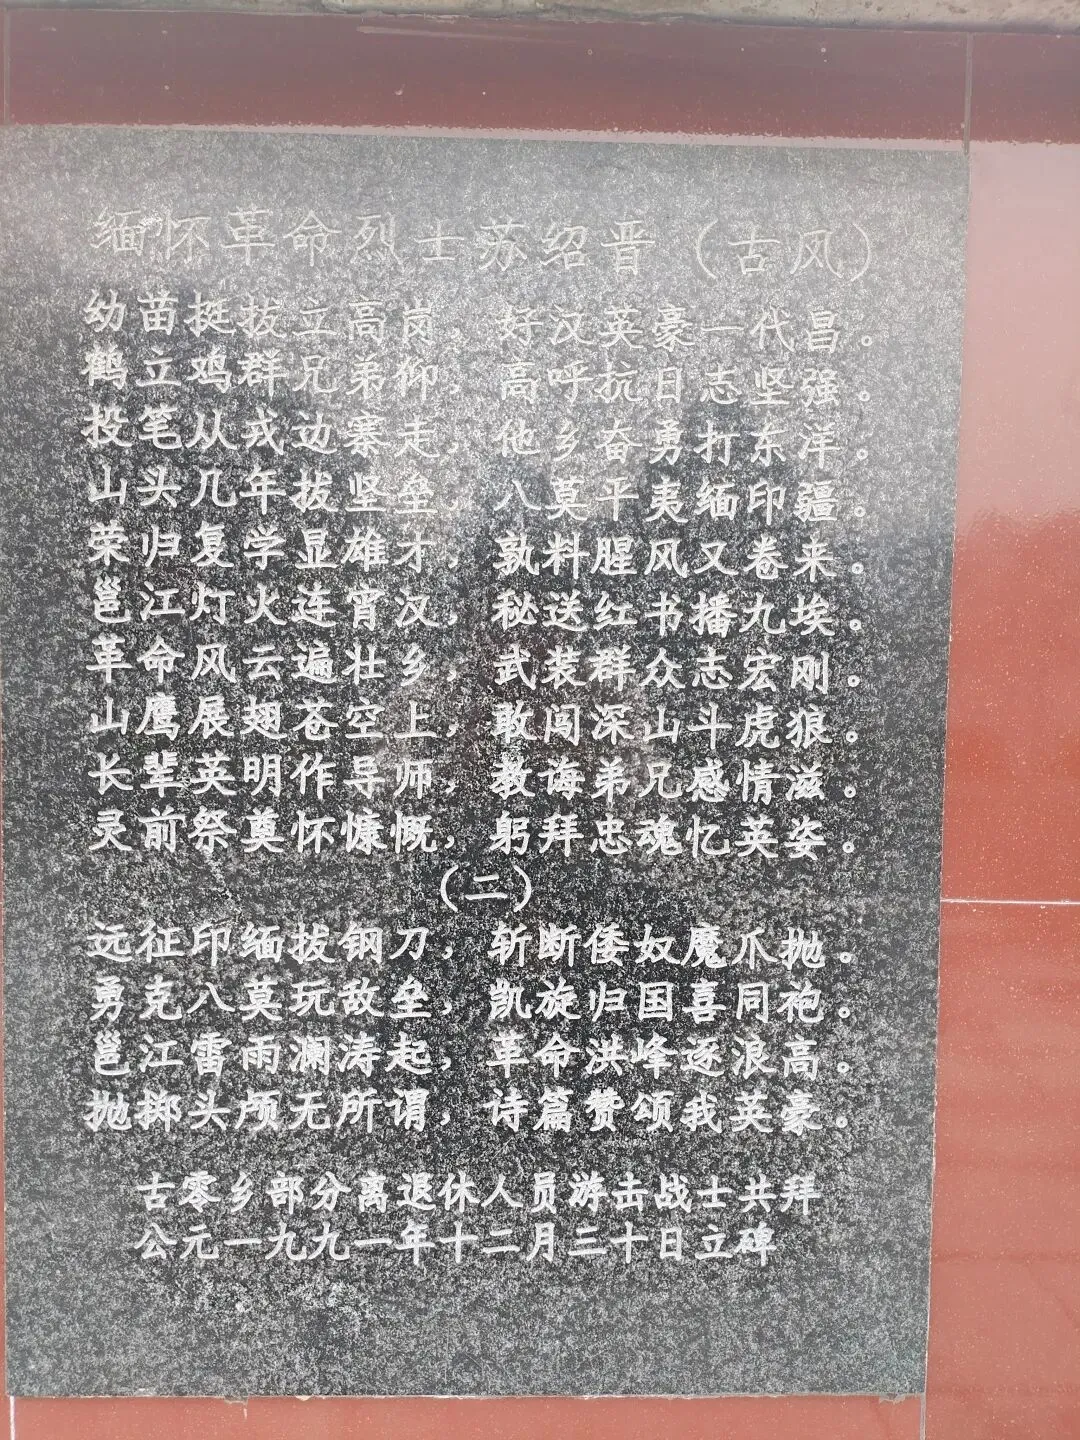 缅怀革命烈士苏绍晋（古风）
幼苗挺拔立高岗，好汉英豪一代昌。
鹤立鸡群兄弟仰，高呼抗日志坚强。
投笔从戎边寨走，他乡奋勇打东洋。
山头几年拔坚垒，八莫平夷缅印疆。
荣归复学显雄才，孰料腥风又卷来。
邕江灯火连宵汉，秘送红书播九埃。
革命风云遍壮乡，武装群众志宏刚。
山鹰展翅苍空上，敢闯深山斗虎狼。
长辈英明作导师，教诲弟兄感情滋。
灵前祭奠怀慷慨，躬拜忠魂忆英姿。
（二）
远征印缅拔钢刀，斩断倭奴魔爪抛。
勇克八莫玩敌垒，凯旋归国喜同袍。
邕江雷雨澜涛起，革命洪峰逐浪高。
抛掷头颅无所谓，诗篇赞颂我英豪。
古零乡部分离退休人员游击战士共拜
公元一九九一年十二月三十日立碑